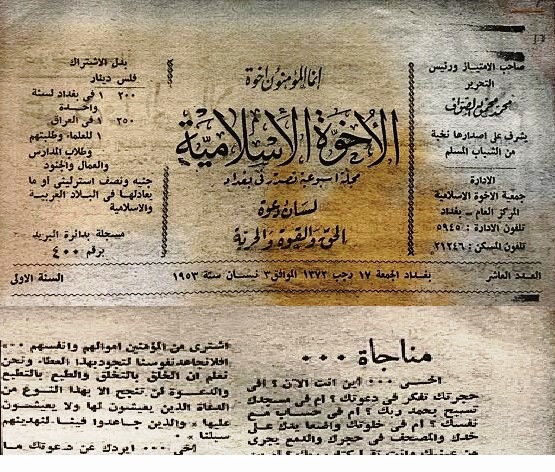 صاحب الامتياز ورئيس
التحرير
محمد محمود الصواف
يشرف على اصدارها نخبة
من الشباب المسلم
الادارة
جمعية الاخوة الاسلامية
المركز العام - بغداد
تلفون الادارة : ٥٩٤٥
تلفون المسكن : ٢١٢٤٦
انما المؤمنون اخوة
الاخوة الاسلامية
مجلة اسبوعية تصدر في بغداد
لسان دعوة
الحق والقوة والحرية
بدل الاشتراك
فلس دينار
٢٠٠ ١ في بغداد لسنة
واحدة
٢٥٠ ١ في العراق
١ للعلماء وطلبتهم
وطلاب المدارس
والعمال والجنود
جنيه ونصف استرليني او ما
يعادلها في البلاد العربية
والاسلامية
مسجلة بدائرة البريد
برقم ٤٠٠
العدد العاشر بغداد الجمعة ١٧ رجب ١٣٧٢ الموافق ٣ نسان سنة ١٩٥٣ السنة الاولى
مناجاة ٠٠٠
اخي ٠٠٠ اين انت الآن ؟ افي
حجرتك تفكر في دعوتك ؟ ام في مسجدك
تسبح بحمد ربك ؟ ام في حساب مع
نفسك ؟ ام في خلوتك واضعا يدك على
خدك والمصحف في حجرك والدمع يجري
من عينيك وانت
اشترى من المؤمنين اموالهم وانفسهم ٠٠٠
افلا نجاهد نفوسنا لتجود بهذا العطاء ونحن
نعلم ان الخلق بالتخلق والطبع بالتطبع
والدعوة لن تنجح الا بهذا النوع من
الدعاة الذين يعيشون لها ولا يعيشون
عليها « والذين جاهدوا فينا لنهدينهم
سبلنا »
اخي ٠٠٠ اريدك عن دعوتك ما